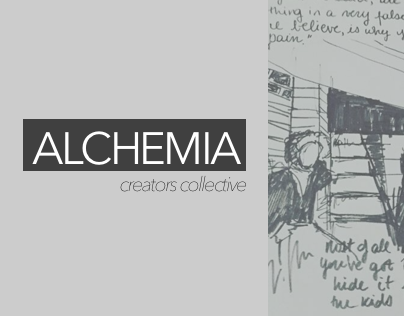 ALCHEMIA
creators collective
thing in a very false
me believe, is why y
pain."
most of all
you've got
hide it
the kids